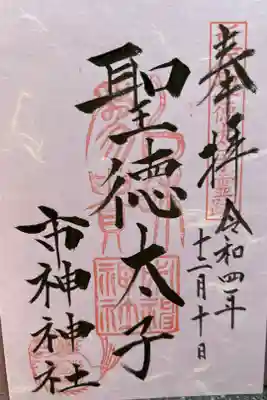 奉拝
令和四年
十二月十日
聖徳太子
市神神社